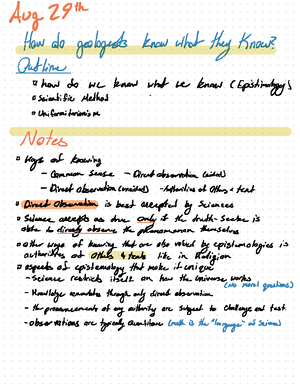 Aug 29th
How do geologists know what they know?
Outline
▫ how do we know what we know (Epistimology)
▫ Scientific Method
▫ Uniformitarianism
Notes
▫ Ways of knowing
– Common Sense – Direct observation (aided)
– Direct observation (unaided) – Authorities of Others & text
▫ Direct Observation is best accepted by Sciences
▫ Science accepts as true only if the truth-seeker is
able to directly observe the phenomenon themselves
▫ other ways of knowing that are also valued by epistemologies is
authorities of others & texts like in Religion
▫ aspects of epistemology that make it unique
– Science restricts itself on how the universe works
(no moral questions)
– Knowledge through only direct observation
– the pronouncements of any authority are subject to challenge and test.
– observations are typically quantitative (math is the "language" of Science)